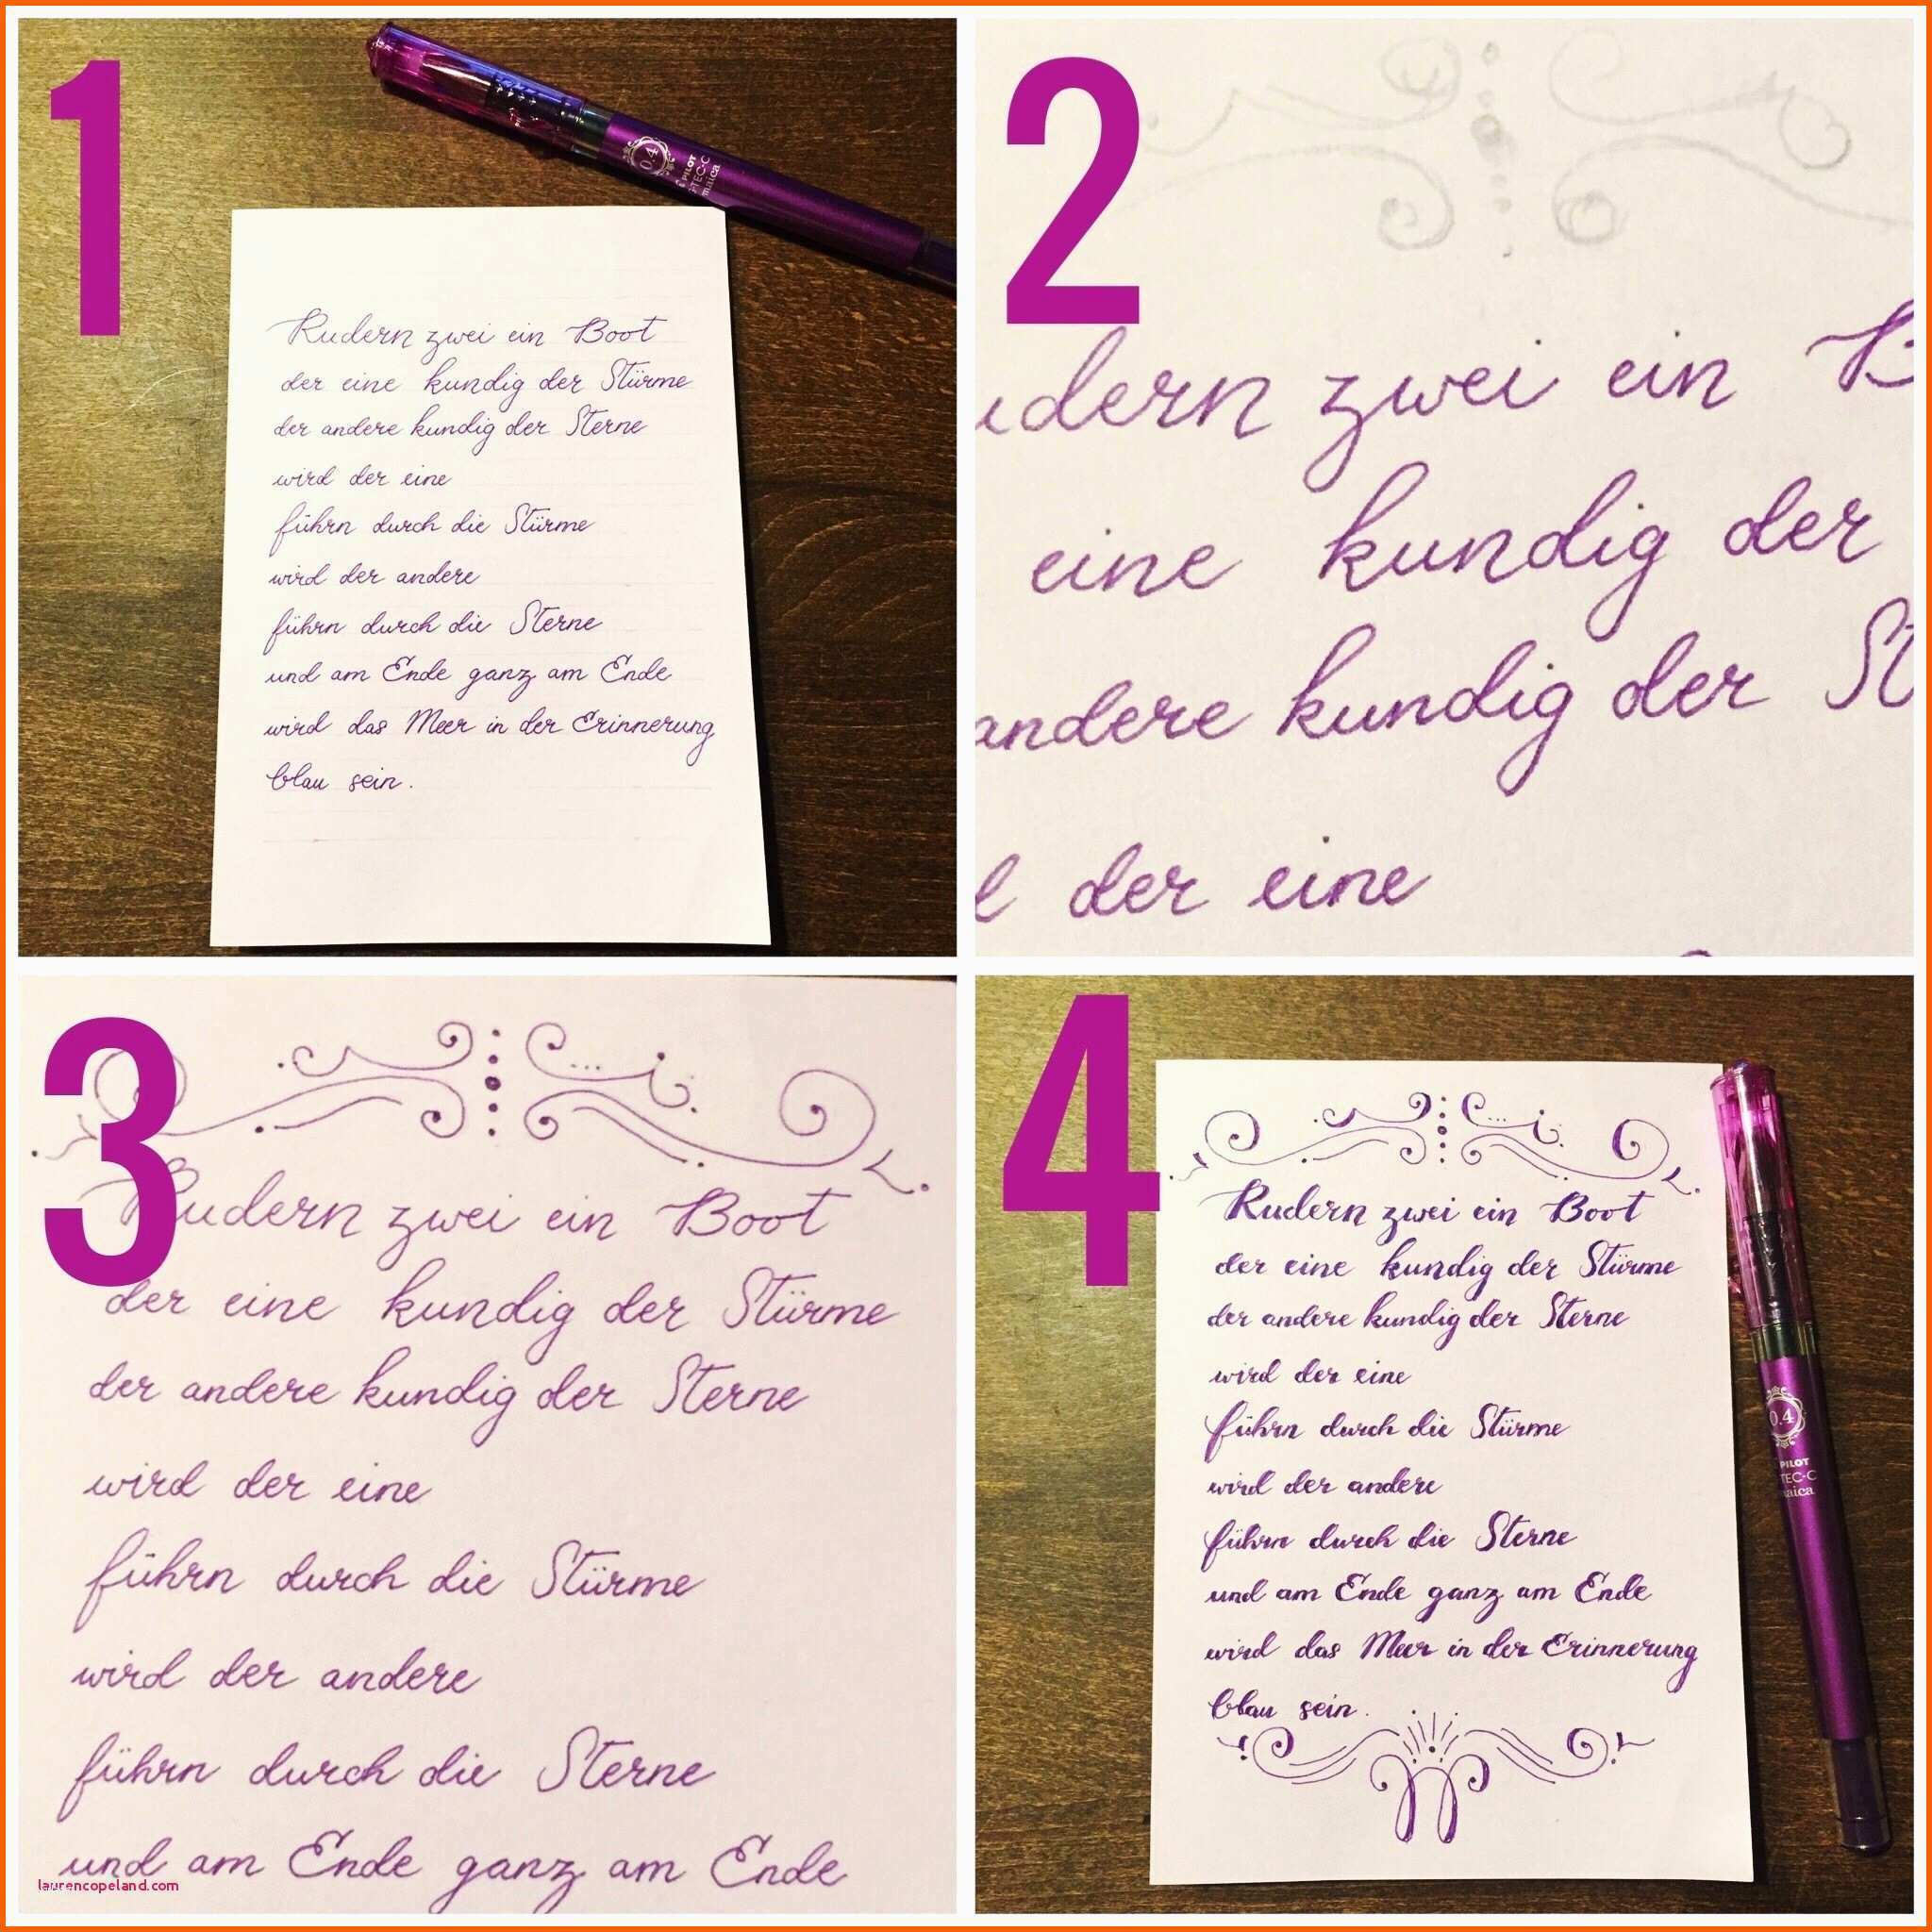 1
0.4
PILOT
Rudern zwei ein Boot
der eine kundig der Stürme
der andere kundig der Sterne
wird der eine
führn durch die Stürme
wird der andere
führn durch die Sterne
und am Ende ganz am Ende
wird das Meer in der Erinnerung
blau sein.
2
dern zwei ein B
eine kundig der
andere kundig der St
der eine
3
Rudern zwei ein Boot
der eine kundig der Stürme
der andere kundig der Sterne
wird der eine
führn durch die Stürme
wird der andere
führn durch die Sterne
und am Ende ganz am Ende
laurencopeland.com
4
Rudern zwei ein Boot
der eine kundig der Stürme
der andere kundig der Sterne
wird der eine
führn durch die Stürme
wird der andere
führn durch die Sterne
und am Ende ganz am Ende
wird das Meer in der Erinnerung
blau sein.
0.4
PILOT
TEC-C
aica